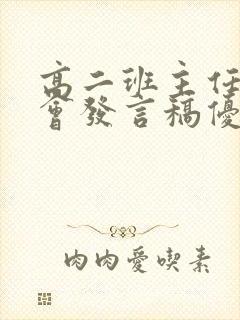 高二班主任
會發言稿優
肉肉愛喫素